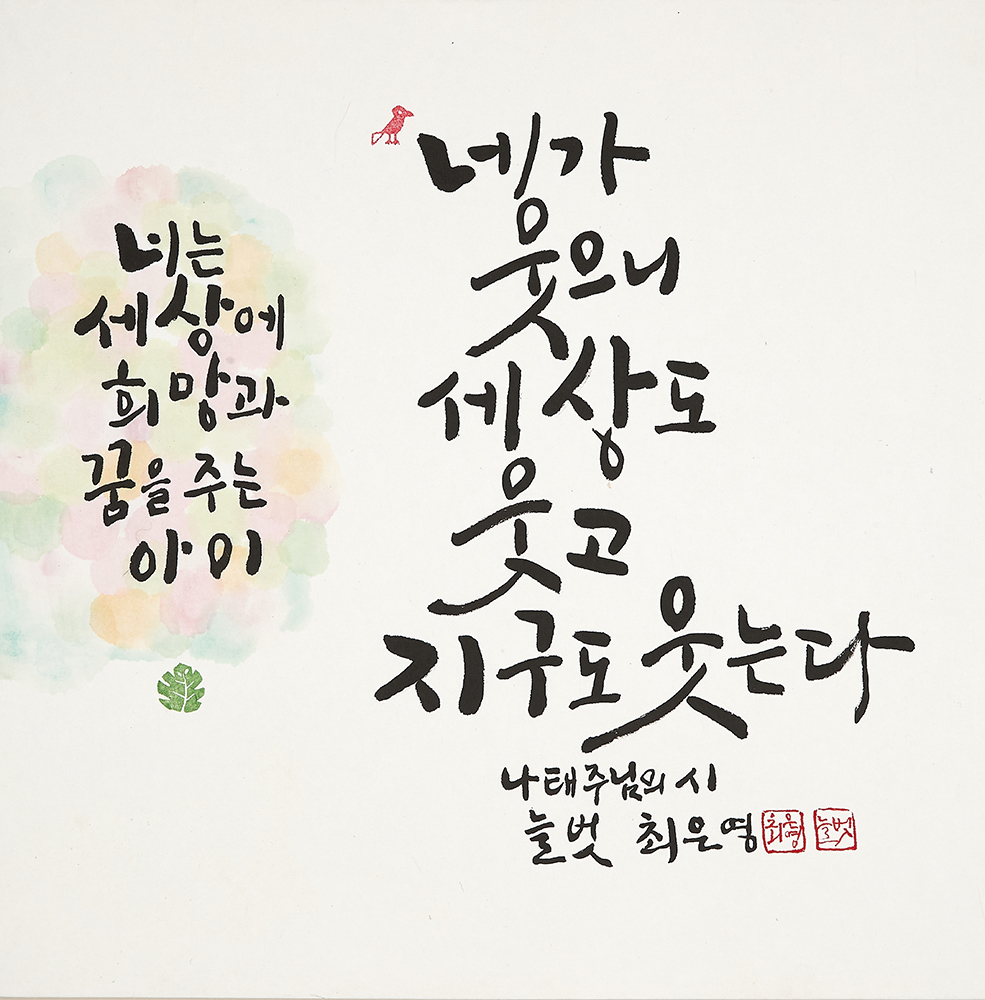 너는
세상에
희망과
꿈을 주는
아이
네가
웃으니
세상도
웃고
지구도 웃는다
나태주님의 시
늘벗 최은영
최은영
늘벗